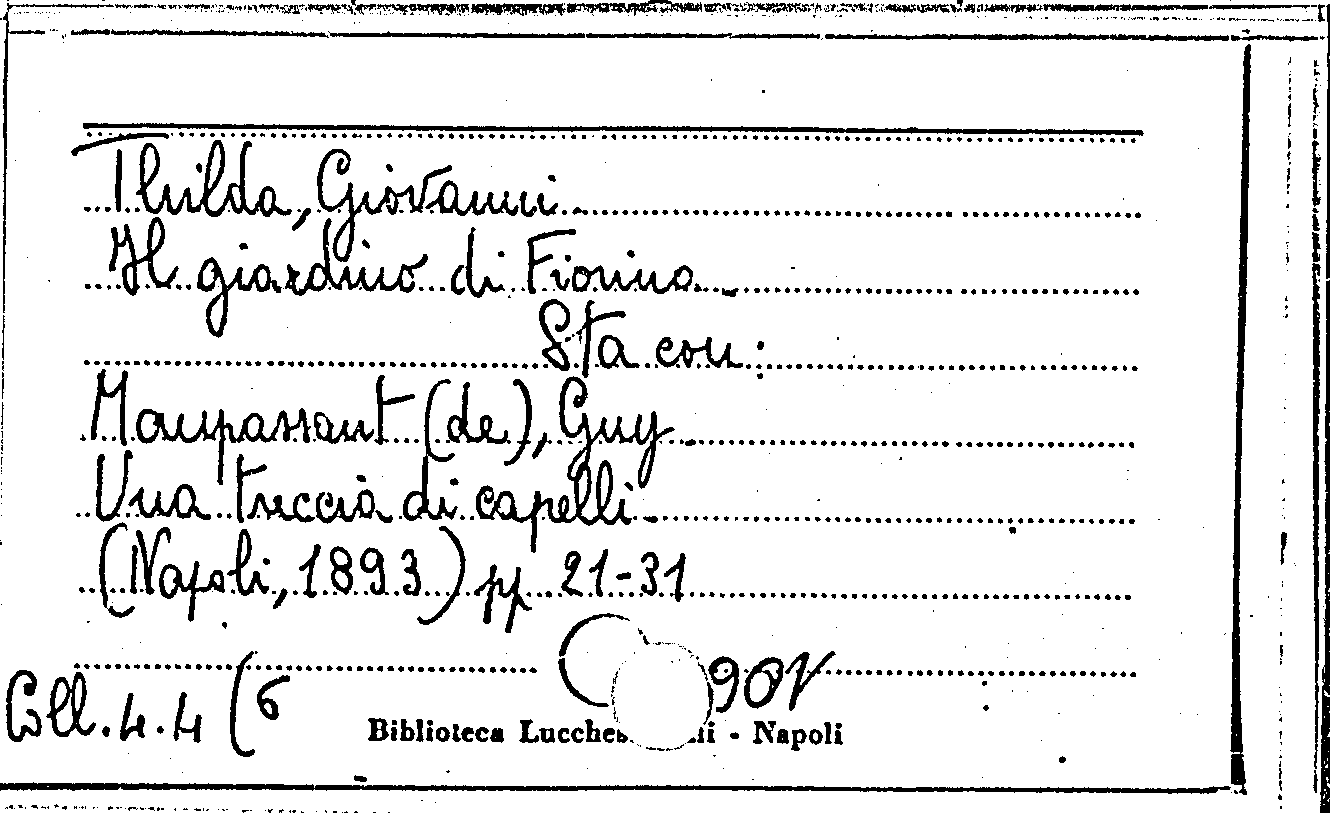 Thilda, Giovanni.
Il giardino di Fiorino.
Sta con:
Maupassant (de), Guy.
Una treccia di capelli.
(Napoli, 1893) pp 21-31
Coll. 4.4 (6
Biblioteca - Napoli